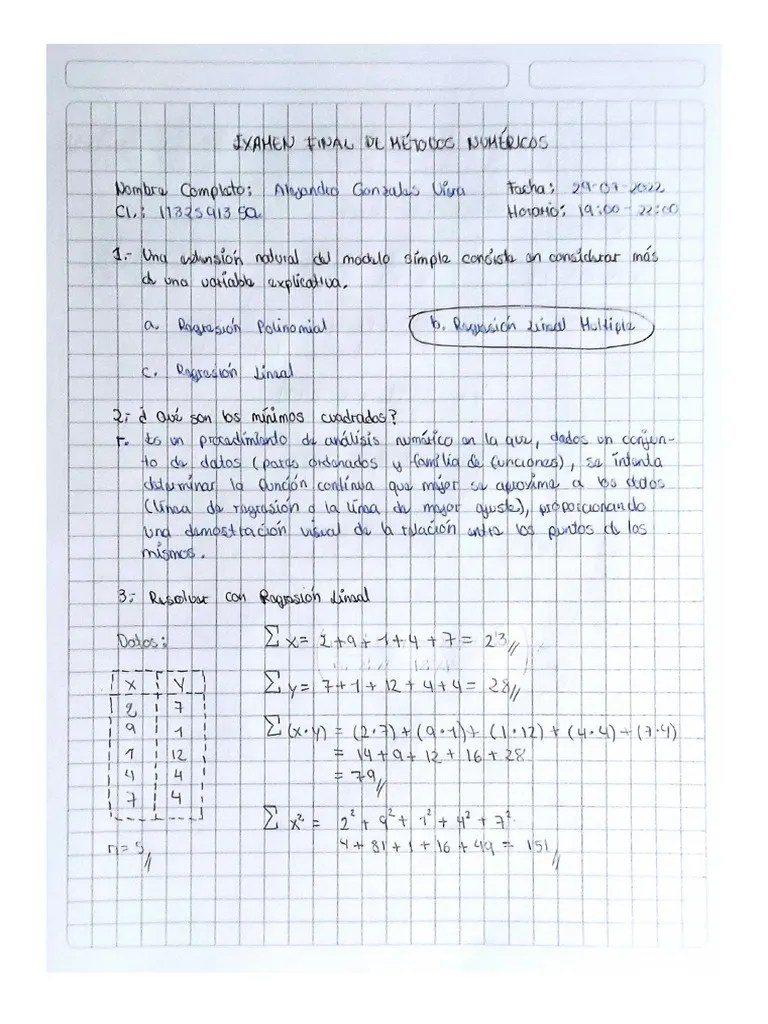 EXAMEN FINAL DE MÉTODOS NUMÉRICOS
Nombre Completo: Alejandro Gonzales Viera Fecha: 29-07-2022
CI.: 11325913 SC. Horario: 19:00 - 22:00
1.- Una extensión natural del modulo simple consiste en considerar más
de una variable explicativa.
a. Regresión Polinomial b. Regresión Lineal Multiple
c. Regresión Lineal
2.- ¿ Qué son los mínimos cuadrados?
r. Es un procedimiento de análisis numérico en la que, dados un conjun-
to de datos (pares ordenados y familia de funciones), se intenta
determinar la función continua que mejor se aproxime a los datos
(línea de regresión o la línea de mejor ajuste), proporcionando
una demostración visual de la relación entre los puntos de los
mismos.
3.- Resolver con Regresión Lineal
Datos: Σ x = 2+9+1+4+7 = 23//
X Y Σ y = 7+1+12+4+4 = 28//
2 7
9 1 Σ(x·y) = (2·7) + (9·1) + (1·12) + (4·4) + (7·4)
1 12 = 14+9+12+16+28
4 4 = 79//
7 4
Σ x² = 2² + 9² + 1² + 4² + 7²
n = 5// 4+81+1+16+49 = 151//